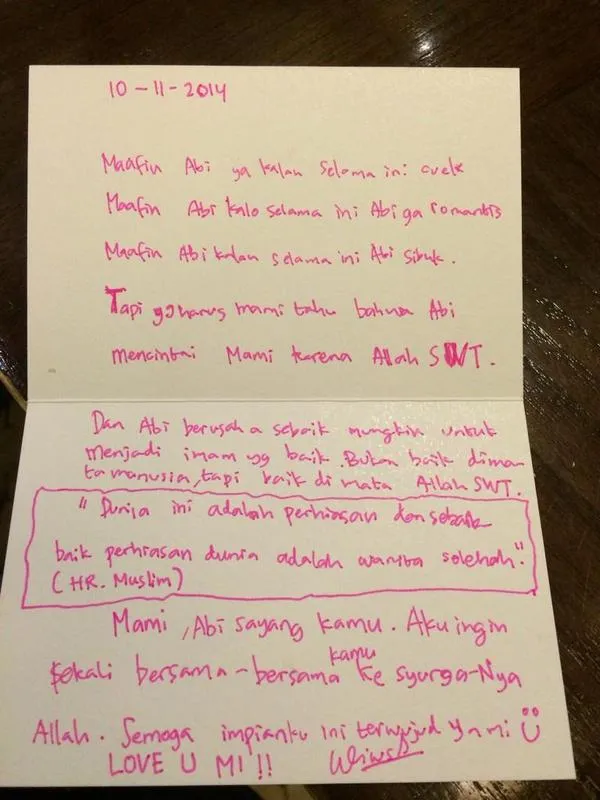 10-11-2014
Maafin Abi ya kalau selama ini cuek
Maafin Abi kalo selama ini Abi ga romantis
Maafin Abi kalau selama ini Abi sibuk.
Tapi yg harus mami tahu bahwa Abi
mencintai Mami karena Allah SWT.
Dan Abi berusaha sebaik mungkin untuk
menjadi imam yg baik. Bukan baik dimata
ta manusia, tapi baik di mata Allah SWT.
"Dunia ini adalah perhiasan dan sebaik
baik perhiasan dunia adalah wanita solehah."
(HR. Muslim)
Mami, Abi sayang kamu. Aku ingin
sekali bersama-bersama kamu ke syurga-Nya
Allah. Semoga impianku ini terwujud ya mi
LOVE U MI!!